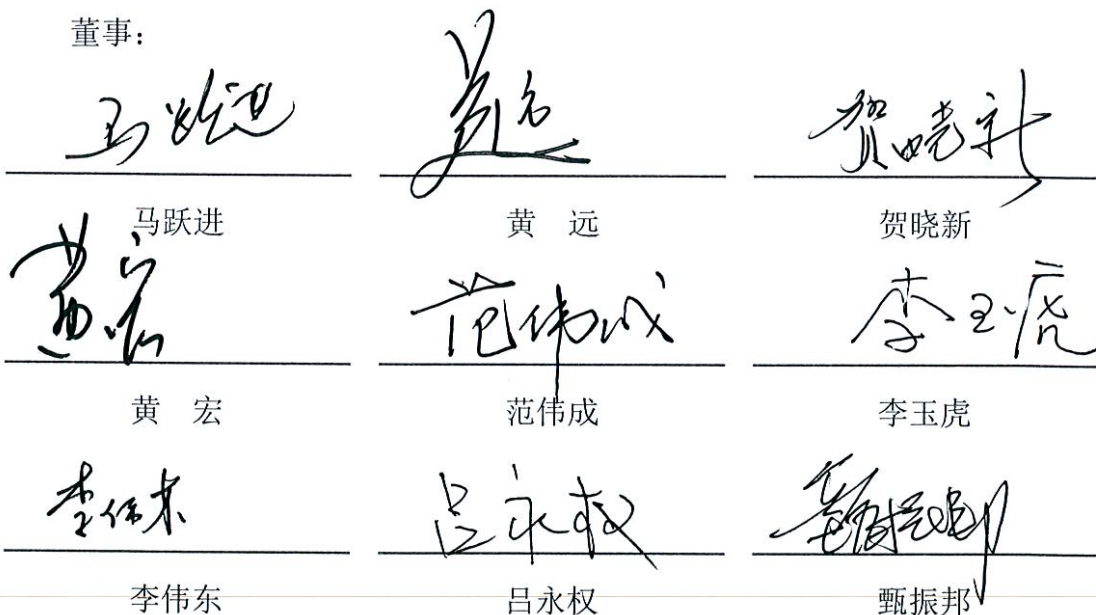 董事：
马跃进 黄远 贺晓新
马跃进 黄 远 贺晓新
黄宏 范伟成 李玉虎
黄 宏 范伟成 李玉虎
李伟东 吕永权 甄振邦
李伟东 吕永权 甄振邦